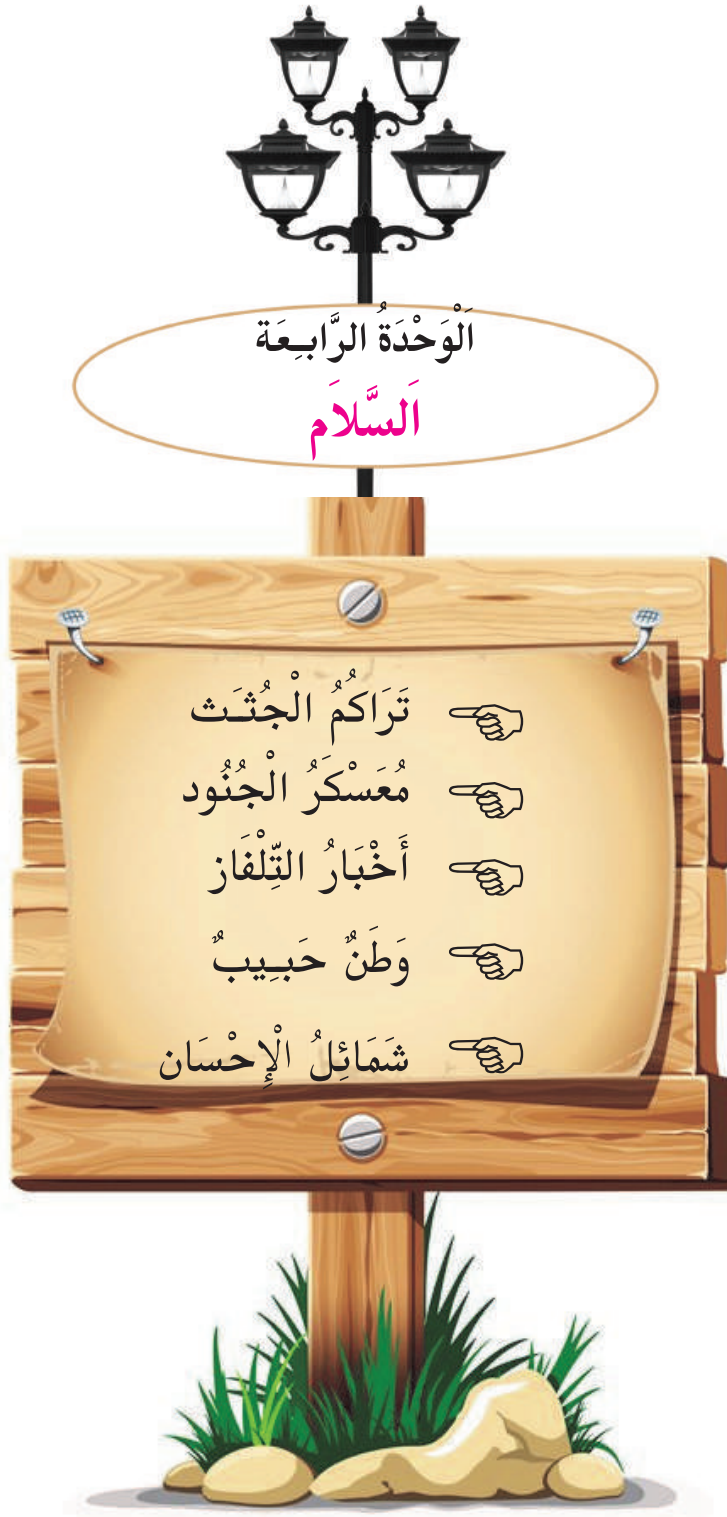 اَلْوَحْدَةُ الرَّابِعَة
اَلسَّلاَم
تَرَاكُمُ الْجُثَث
مُعَسْكَرُ الْجُنُود
أَخْبَارُ التِّلْفَاز
وَطَنٌ حَبِيبٌ
شَمَائِلُ الْإِحْسَان